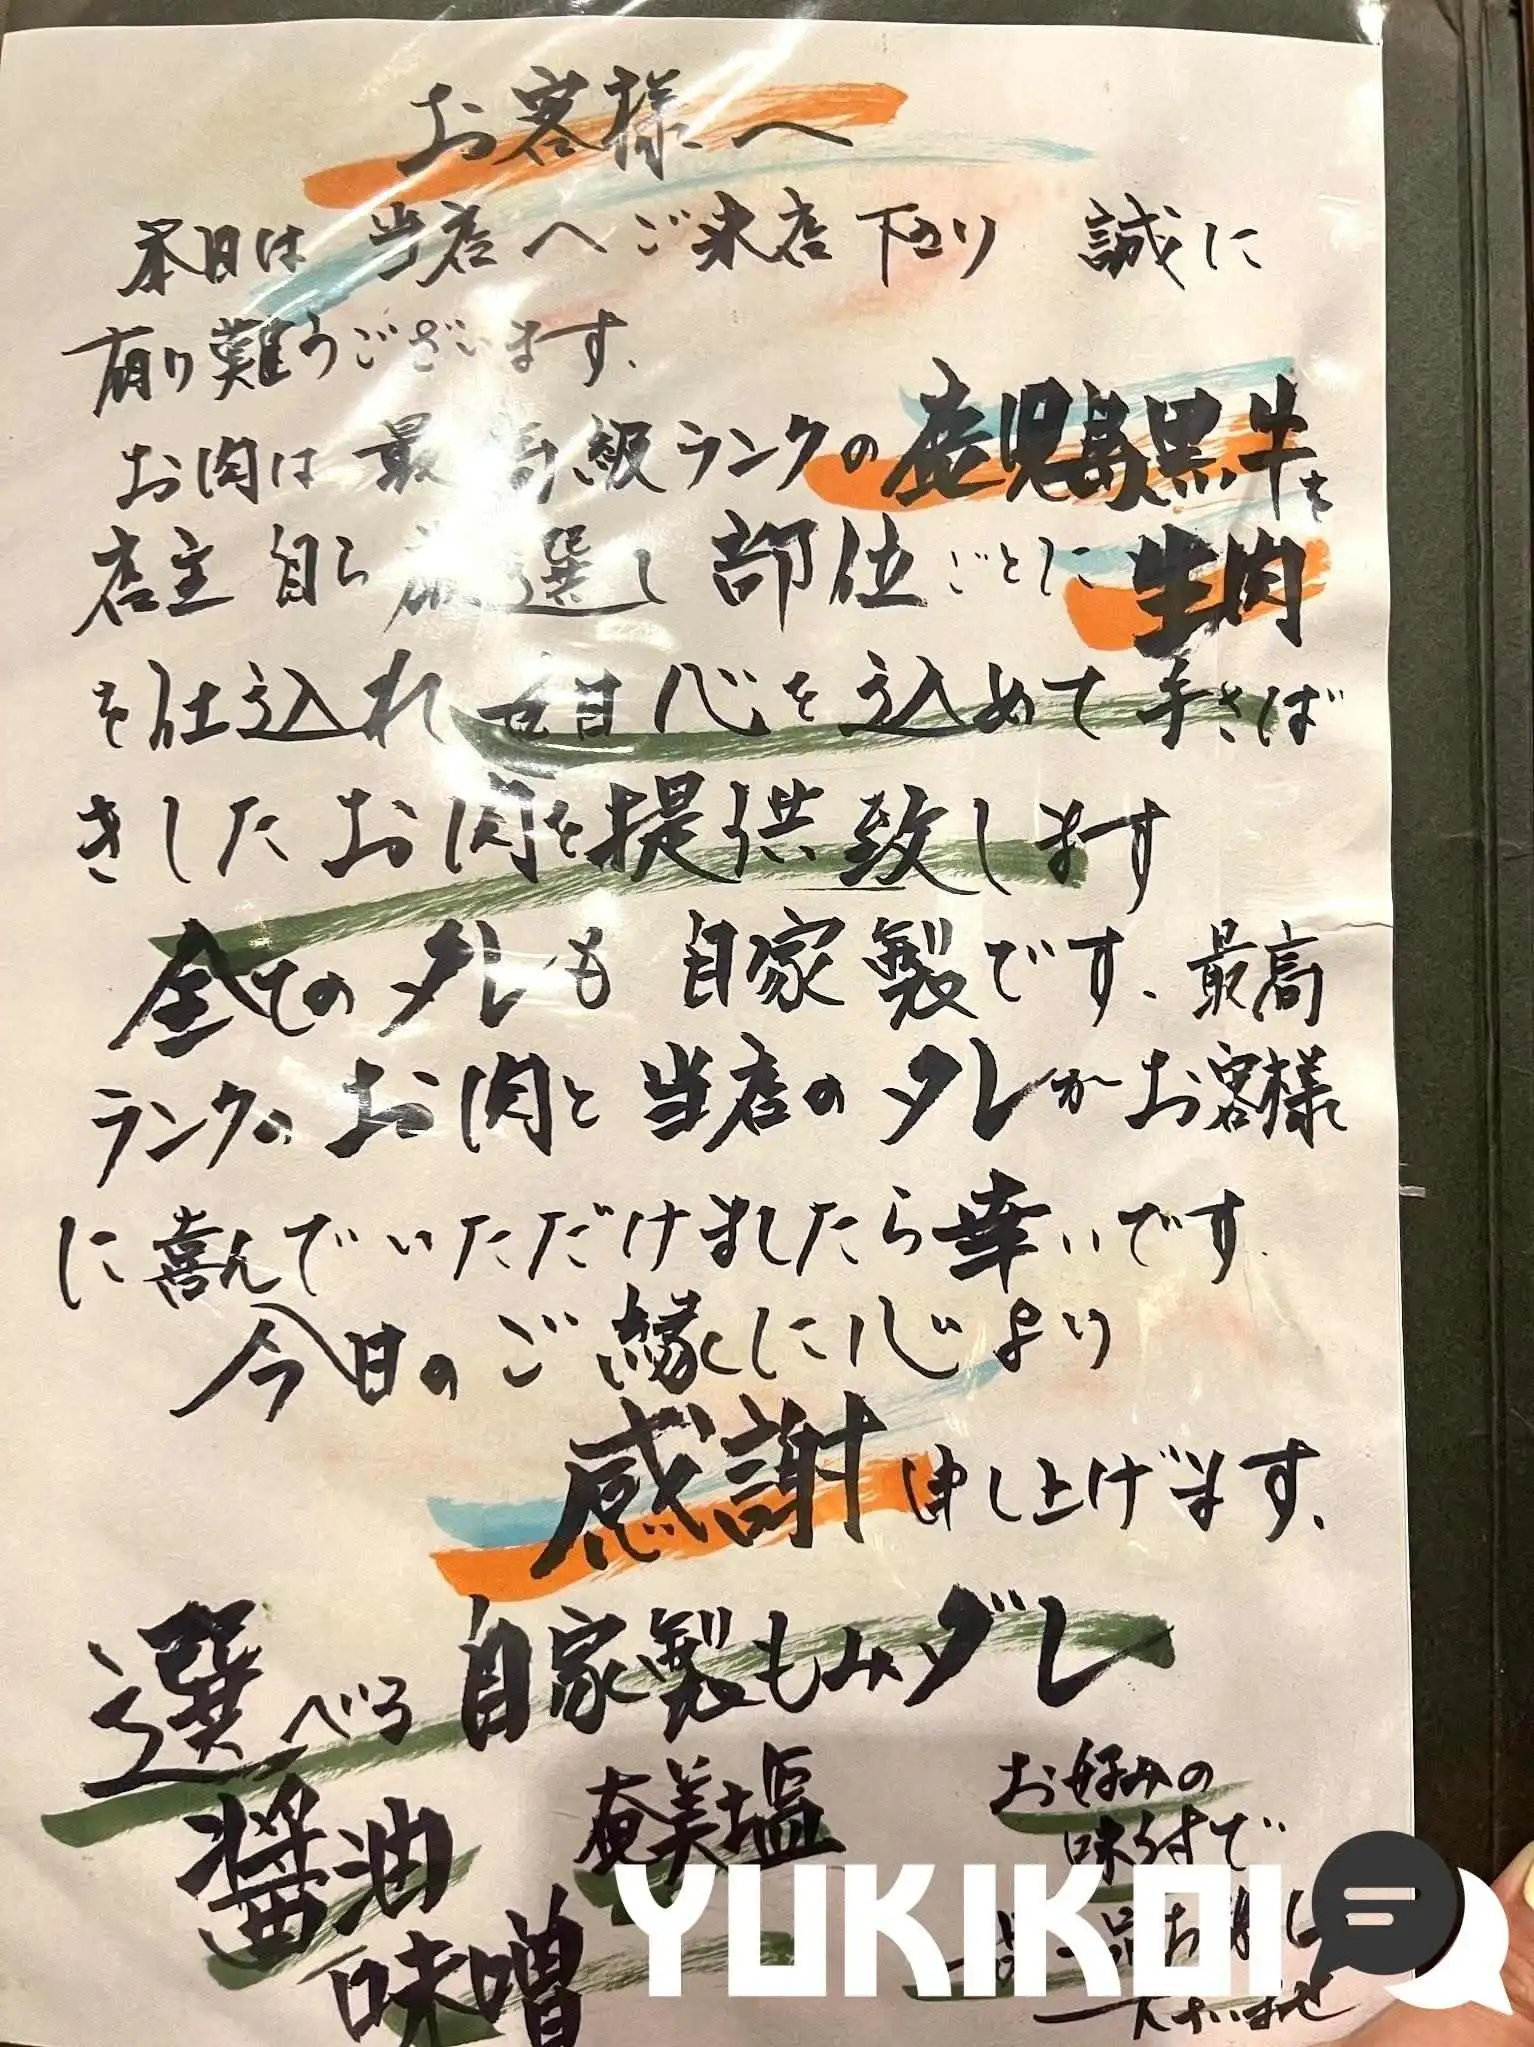 お客様へ
本日は当店へご来店下さり 誠に
有り難うございます、
お肉は最高級ランクの鹿児島黒牛を
店主自ら厳選し部位ごとに生肉
を仕込れ 真心を込めて手さば
きしたお肉を提供致します
全てのタレも自家製です、最高
ランクのお肉と当店のタレがお客様
に喜んでいただけましたら幸いです、
今日のご縁に心より
感謝申し上げます、
選べる自家製もみダレ
醤油
奄美塩
味噌
お好みの
味付で
お
下さいませ
YUKIKOI